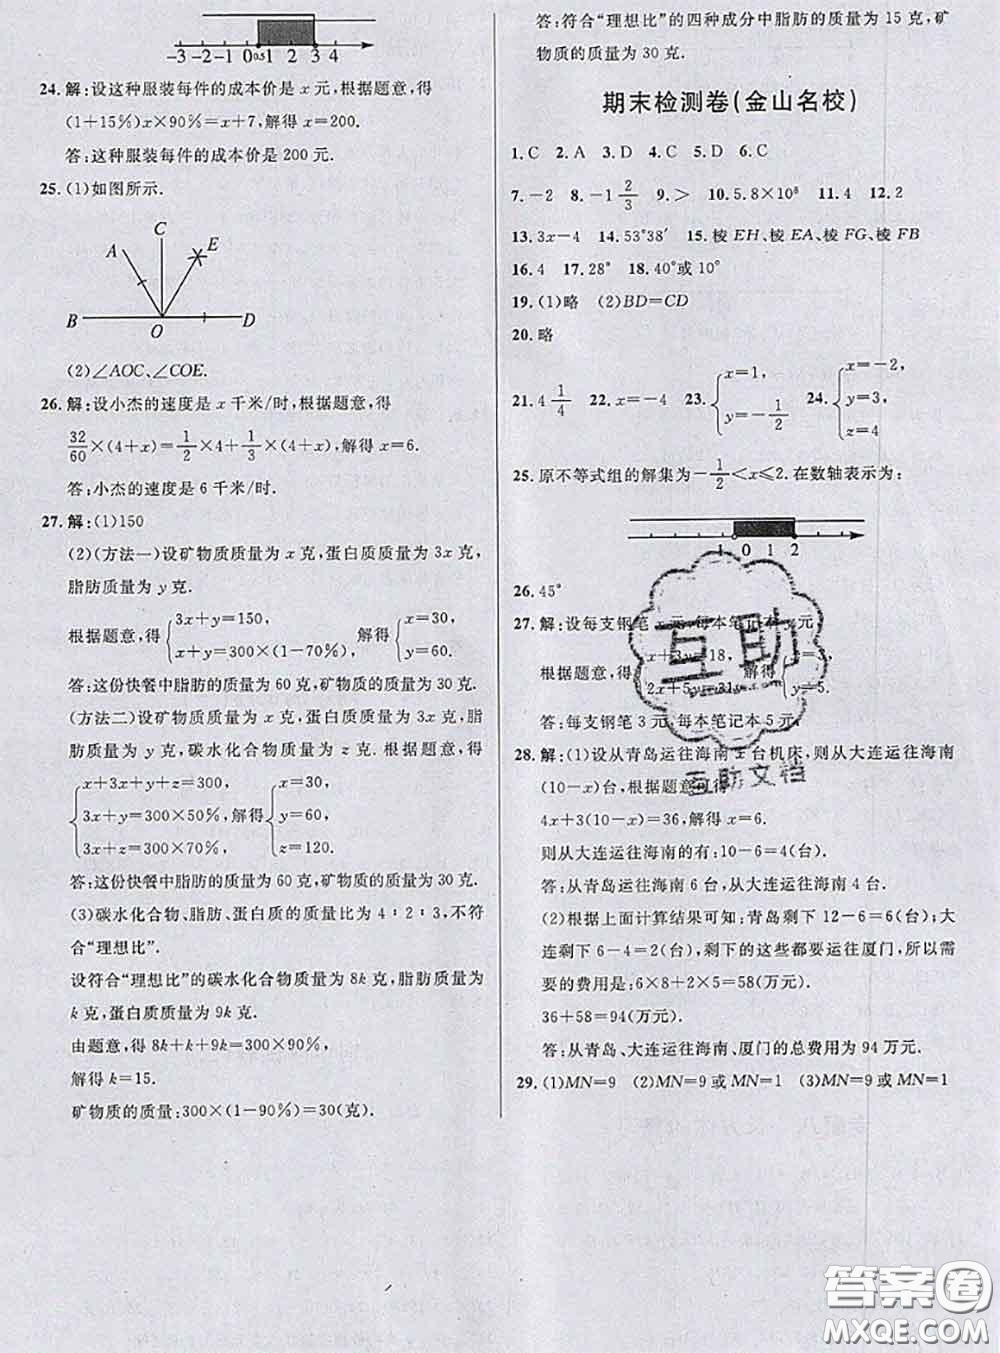 -3 -2 -1 0 0.5 1 2 3 4
24. 解:设这种服装每件的成本价是 x 元,根据题意,得
(1+15%)x×90%=x+7,解得 x=200.
答:这种服装每件的成本价是 200 元.
25. (1)如图所示.
C
A E
B O D
(2)∠AOC、∠COE.
26. 解:设小杰的速度是 x 千米/时,根据题意,得
32/60×(4+x)=1/2×4+1/3×(4+x),解得 x=6.
答:小杰的速度是 6 千米/时.
27. 解:(1)150
(2)(方法一)设矿物质质量为 x 克,蛋白质质量为 3x 克,
脂肪质量为 y 克.
根据题意,得 {3x+y=150, x+y=300×(1-70%), 解得 {x=30, y=60.
答:这份快餐中脂肪的质量为 60 克,矿物质的质量为 30 克.
(方法二)设矿物质质量为 x 克,蛋白质质量为 3x 克,脂
肪质量为 y 克,碳水化合物质量为 z 克. 根据题意,得
{x+3x+y+z=300, 3x+y=300×50%, 3x+z=300×70%, 解得 {x=30, y=60, z=120.
答:这份快餐中脂肪的质量为 60 克,矿物质的质量为 30 克.
(3)碳水化合物、脂肪、蛋白质的质量比为 4∶2∶3,不符
合“理想比”.
设符合“理想比”的碳水化合物质量为 8k 克,脂肪质量为
k 克,蛋白质质量为 9k 克.
由题意,得 8k+k+9k=300×90%,
解得 k=15.
矿物质的质量:300×(1-90%)=30(克).
答:符合“理想比”的四种成分中脂肪的质量为 15 克,矿
物质的质量为 30 克.
期末检测卷(金山名校)
1. C 2. A 3. D 4. C 5. D 6. C
7. -2 8. -1 2/3 9. > 10. 5.8×10⁸ 11. 4 12. 2
13. 3x-4 14. 53°38′ 15. 棱 EH、棱 EA、棱 FG、棱 FB
16. 4 17. 28° 18. 40°或 10°
19. (1)略 (2)BD=CD
20. 略
21. 4 1/4 22. x=-4 23. {x=1, y=-1/2 24. {x=-2, y=3, z=4
25. 原不等式组的解集为-1/2<x≤2. 在数轴表示为:
-1 0 1 2
26. 45°
27. 解:设每支钢笔 x 元,每本笔记本 y 元
根据题意,得 {x+3y=18, 2x+5y=31, 解得 {y=5.
答:每支钢笔 3 元,每本笔记本 5 元.
28. 解:(1)设从青岛运往海南 x 台机床,则从大连运往海南
(10-x)台,根据题意,可得
4x+3(10-x)=36,解得 x=6.
则从大连运往海南的有:10-6=4(台).
答:从青岛运往海南 6 台,从大连运往海南 4 台.
(2)根据上面计算结果可知:青岛剩下 12-6=6(台);大
连剩下 6-4=2(台),剩下的这些都要运往厦门,所以需
要的费用为:6×8+2×5=58(万元).
36+58=94(万元).
答:从青岛、大连运往海南、厦门的总费用为 94 万元.
29. (1)MN=9 (2)MN=9 或 MN=1 (3)MN=9 或 MN=1
互助
互助文档
答案圈
MXQE.COM